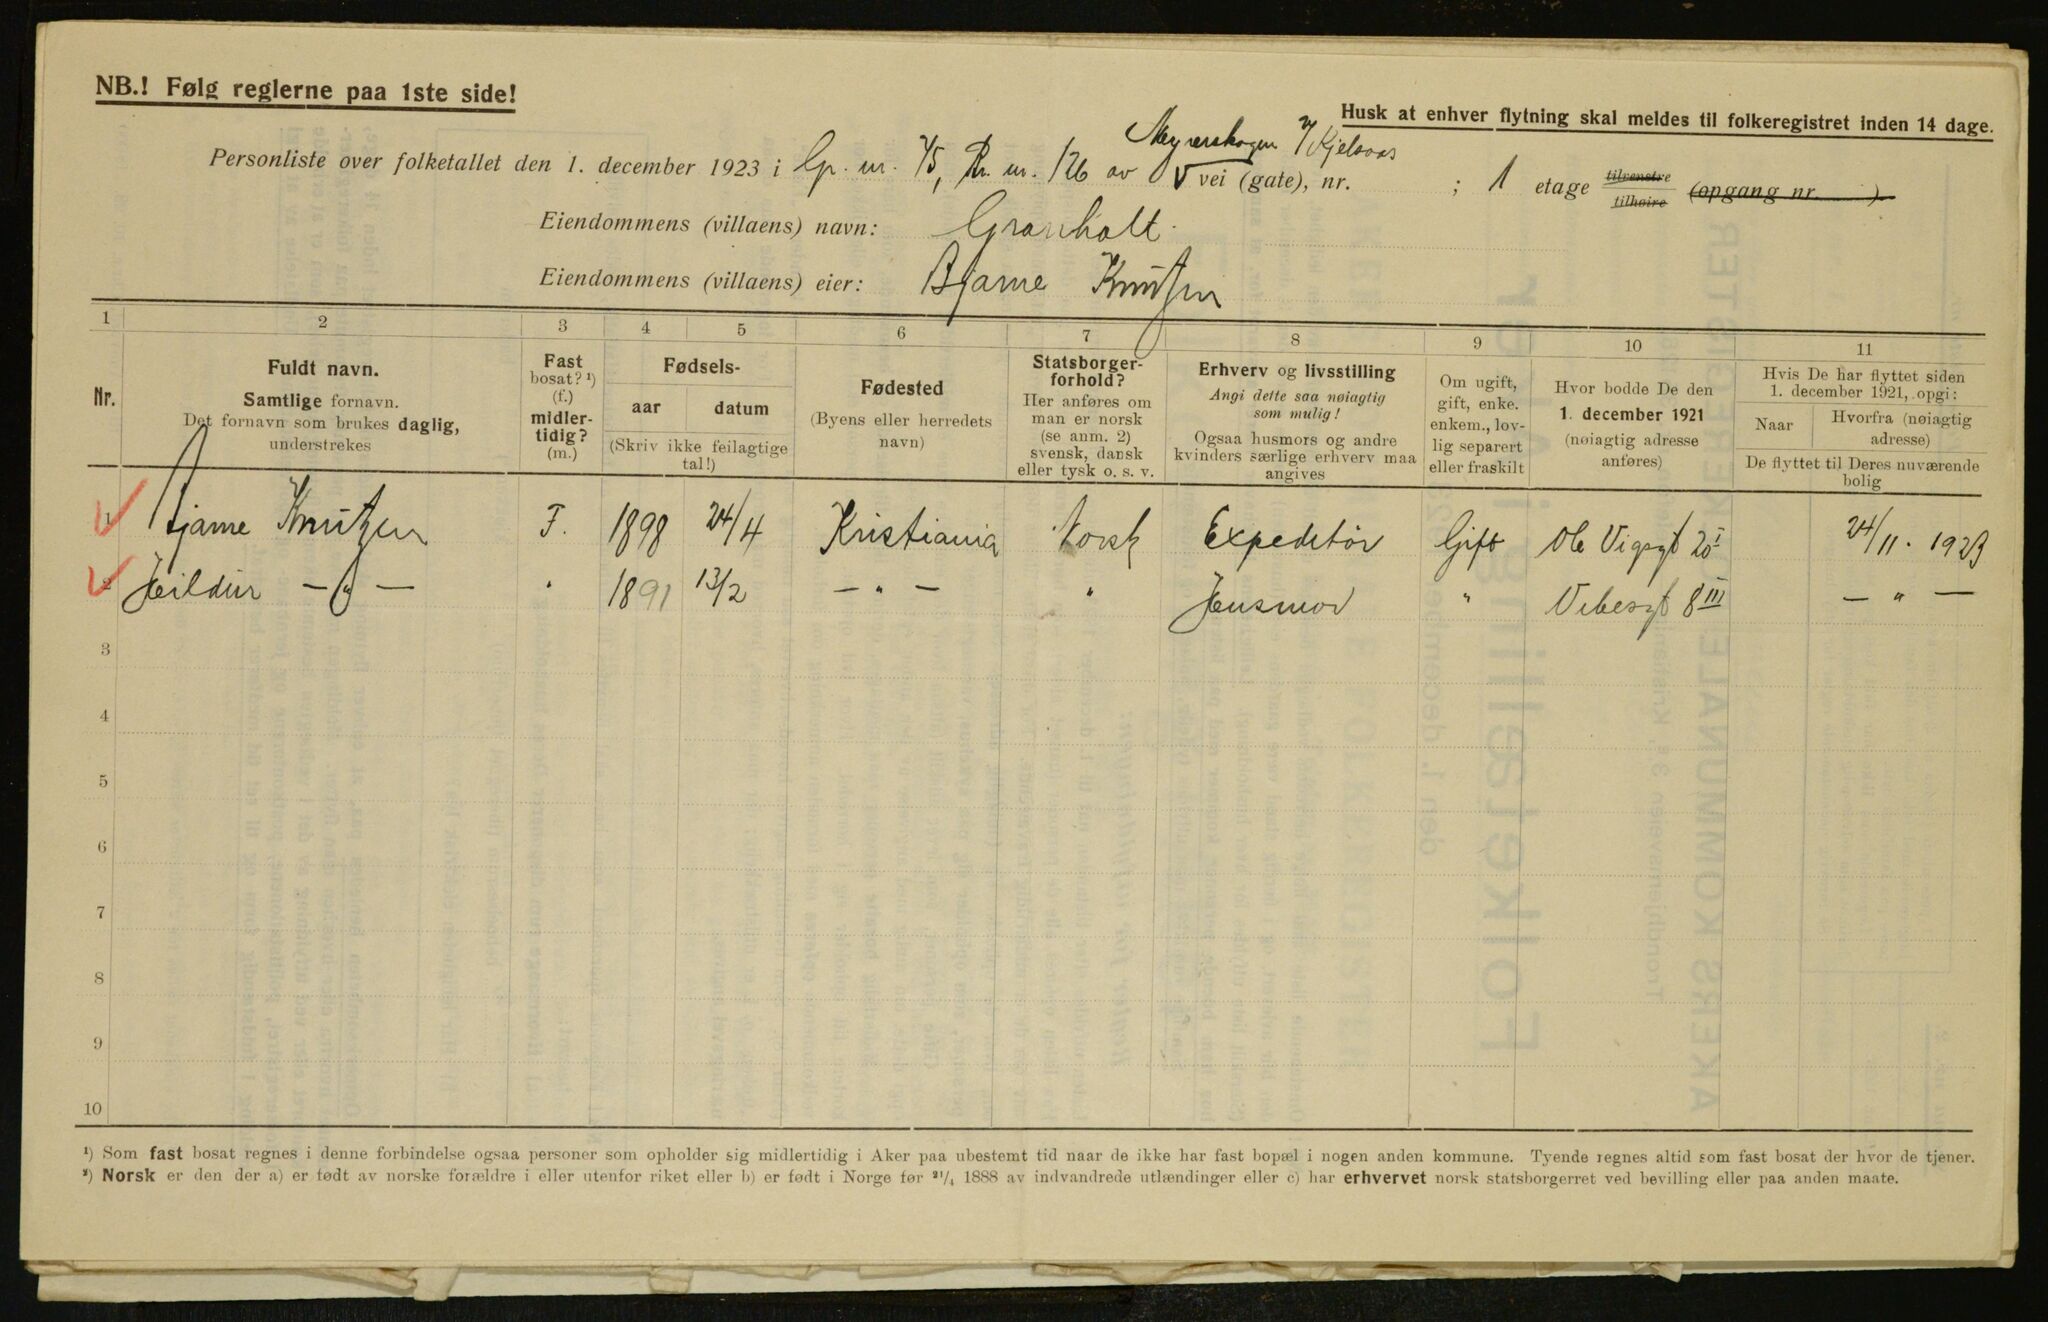 NB.! Følg reglerne paa 1ste side!
Husk at enhver flytning skal meldes til folkeregistret inden 14 dage.
Meyerskogen v/ Kjelsaas
Personliste over folketallet den 1. december 1923 i Gr. nr. 75, Br. nr. 126 av vei (gate), nr. ; 1 etage tilvenstre tilhøire (opgang nr. )
Eiendommens (villaens) navn: Granholt
Eiendommens (villaens) eier: Bjarne Knutzen
1 2 3 4 5 6 7 8 9 10 11
Nr.
Fuldt navn.
Samtlige fornavn.
Det fornavn som brukes daglig,
understrekes
Fast
bosat? ¹)
(f.)
midler-
tidig?
(m.)
Fødsels-
aar datum
(Skriv ikke feilagtige
tal!)
Fødested
(Byens eller herredets
navn)
Statsborger-
forhold?
Her anføres om
man er norsk
(se anm. 2)
svensk, dansk
eller tysk o. s. v.
Erhverv og livsstilling
Angi dette saa nøiagtig
som mulig!
Ogsaa husmors og andre
kvinders særlige erhverv maa
angives
Om ugift,
gift, enke.
enkem., lov-
lig separert
eller fraskilt
Hvor bodde De den
1. december 1921
(nøiagtig adresse
anføres)
Hvis De har flyttet siden
1. december 1921, opgi:
Naar Hvorfra (nøiagtig
adresse)
De flyttet til Deres nuværende
bolig
1 Bjarne Knutzen F. 1898 24/4 Kristiania Norsk Expeditør Gift Ole Vigsgt 20 I 24/11. 1923
2 Heildur — " — " 1891 13/2 — " — " Husmor " Vibesgt 8 III — " —
3
4
5
6
7
8
9
10
¹) Som fast bosat regnes i denne forbindelse ogsaa personer som opholder sig midlertidig i Aker paa ubestemt tid naar de ikke har fast bopæl i nogen anden kommune. Tyende regnes altid som fast bosat der hvor de tjener.
²) Norsk er den der a) er født av norske forældre i eller utenfor riket eller b) er født i Norge før ²¹/₄ 1888 av indvandrede utlændinger eller c) har erhvervet norsk statsborgerret ved bevilling eller paa anden maate.